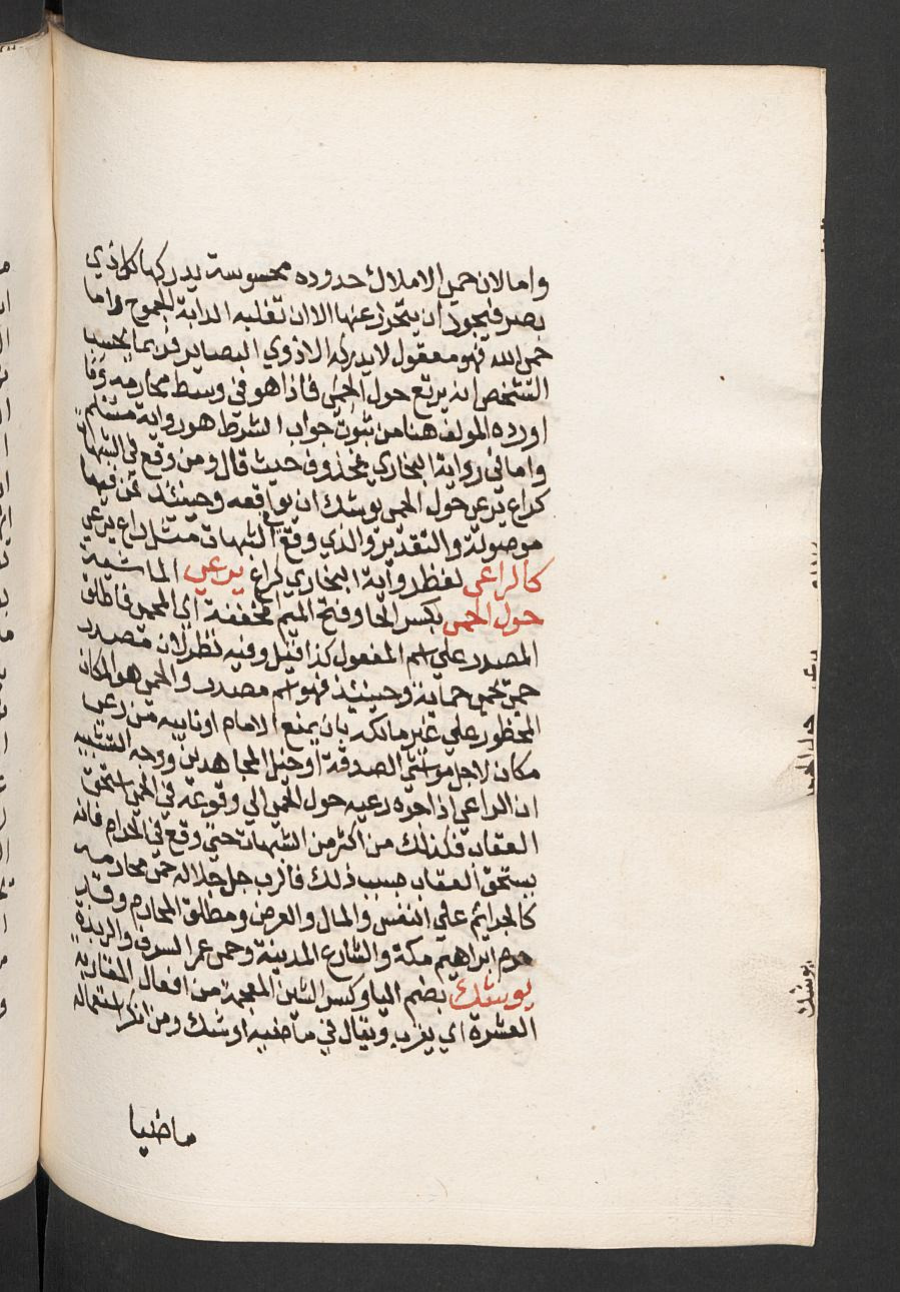 واما لان حمى الاملاك حدوده محسوسة يدركها كل ذي
بصر فيجوز ان يتحرز عنها الا ان تغلبه الدابة الجموح واما
حمى الله فهو معقول لا يدركه الا ذوي البصاير فربما يحسب
الشخص انه يرتع حول الحمى فاذا هو في وسط محارمه وما
اورده المولف هنا من ثبوت جواب الشرط هو رواية مسلم
واما في رواية البخاري فمحذوف حيث قال ومن وقع في الشبهات
كراع يرعى حول الحمى يوشك ان يواقعه وحينئذ فمن فيها
موصولة والتقدير والذي وقع في الشبهات مثل راع يرعى
كالراعي لفظ رواية البخاري كراع يرعى الماشية
حول الحمى بكسر الحا وفتح الميم مخففة اي المحمى فاطلق
المصدر على اسم المفعول كذا قيل وفيه نظر لان مصدر
حمى يحمى حماية وحينئذ فهو اسم مصدر والحمى هو المكان
المحظور على غير مالكه بان يمنع الامام او نايبه من رعى
مكان لاجل مواشي الصدقة او خيل المجاهدين ووجه التشبيه
ان الراعي اذا جره رعيه حول الحمى الى وقوعه في الحمى استحق
العقاب فكذلك من اكثر من الشبهات حتى وقع في الحرام فانه
يستحق العقاب بسبب ذلك فالرب جل جلاله حمى محارمه
كالجرائم على النفس والمال والعرض ومطلق المحارم وقد
حرم ابراهيم مكة والشارع المدينة وحمى عمر السرف والربذة
يوشك بضم اليا وكسر الشين المعجمة من افعال المقاربة
العشرة اي يقرب ويقال في ماضيه اوشك ومن انكر استعماله
ماضيا
يرعى
حول الحمى
يوشك